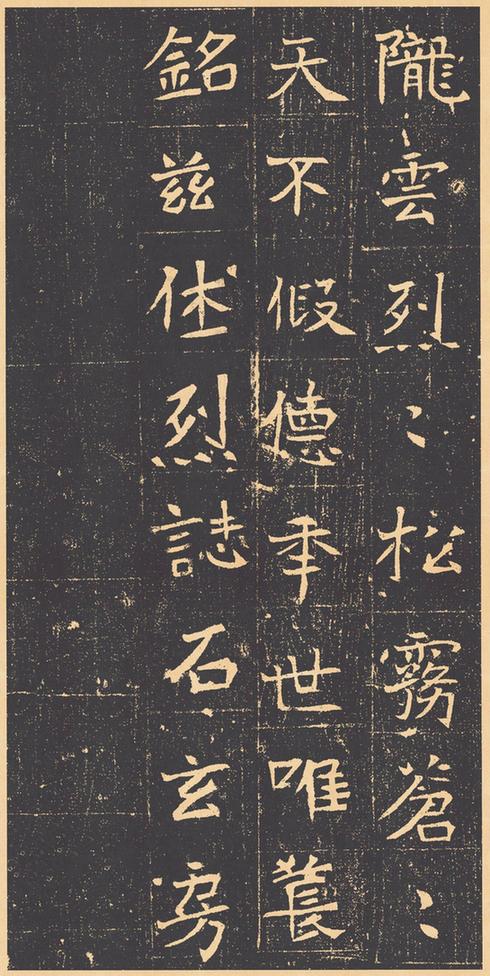 隴雲烈〻松霧蒼〻
天不假德年世唯萇
銘茲休烈誌石玄房